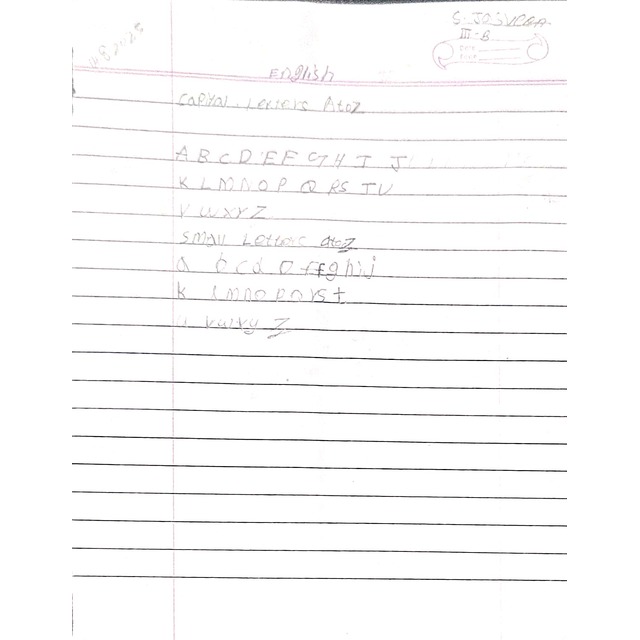 S. JOSVPBA
III-B
14.8.2025
English
Capital Letters A to Z
A B C D E F G H I J
K L M N O P Q R S T U
V W X Y Z
Small Letters a to Z
a b c d e f f g h i j
k l m n o p q r s t
u v w x y z